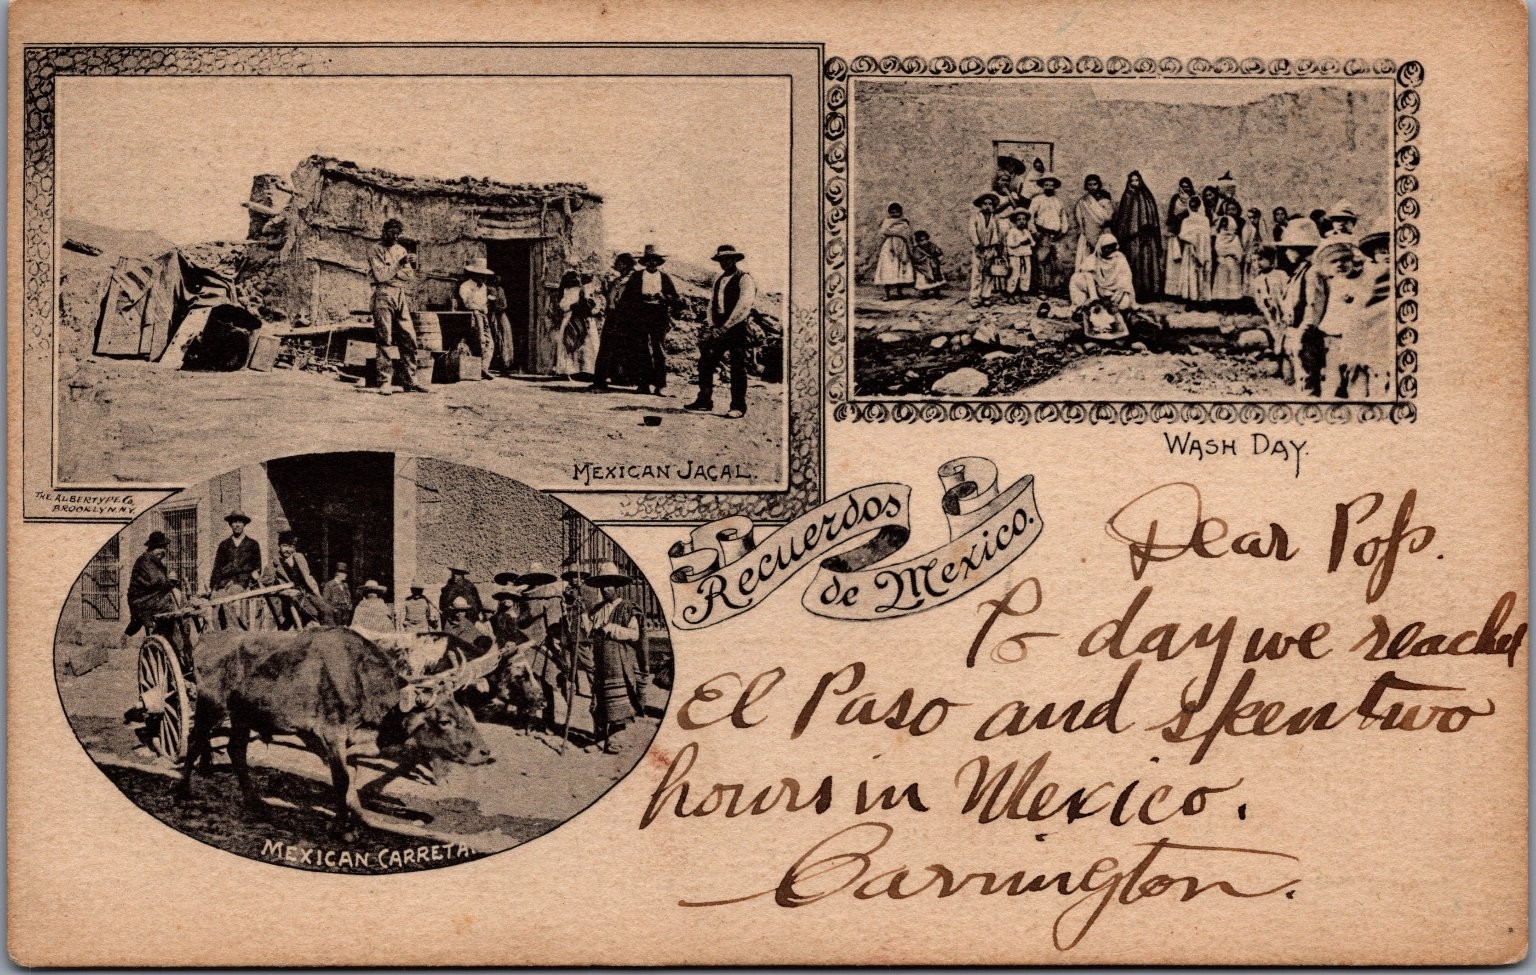 MEXICAN JACAL.
THE ALBERTYPE Co.
BROOKLYN. N.Y.
WASH DAY.
Recuerdos
de Mexico.
MEXICAN CARRETA.
Dear Pop.
To day we reached
El Paso and spent two
hours in Mexico.
Carrington.